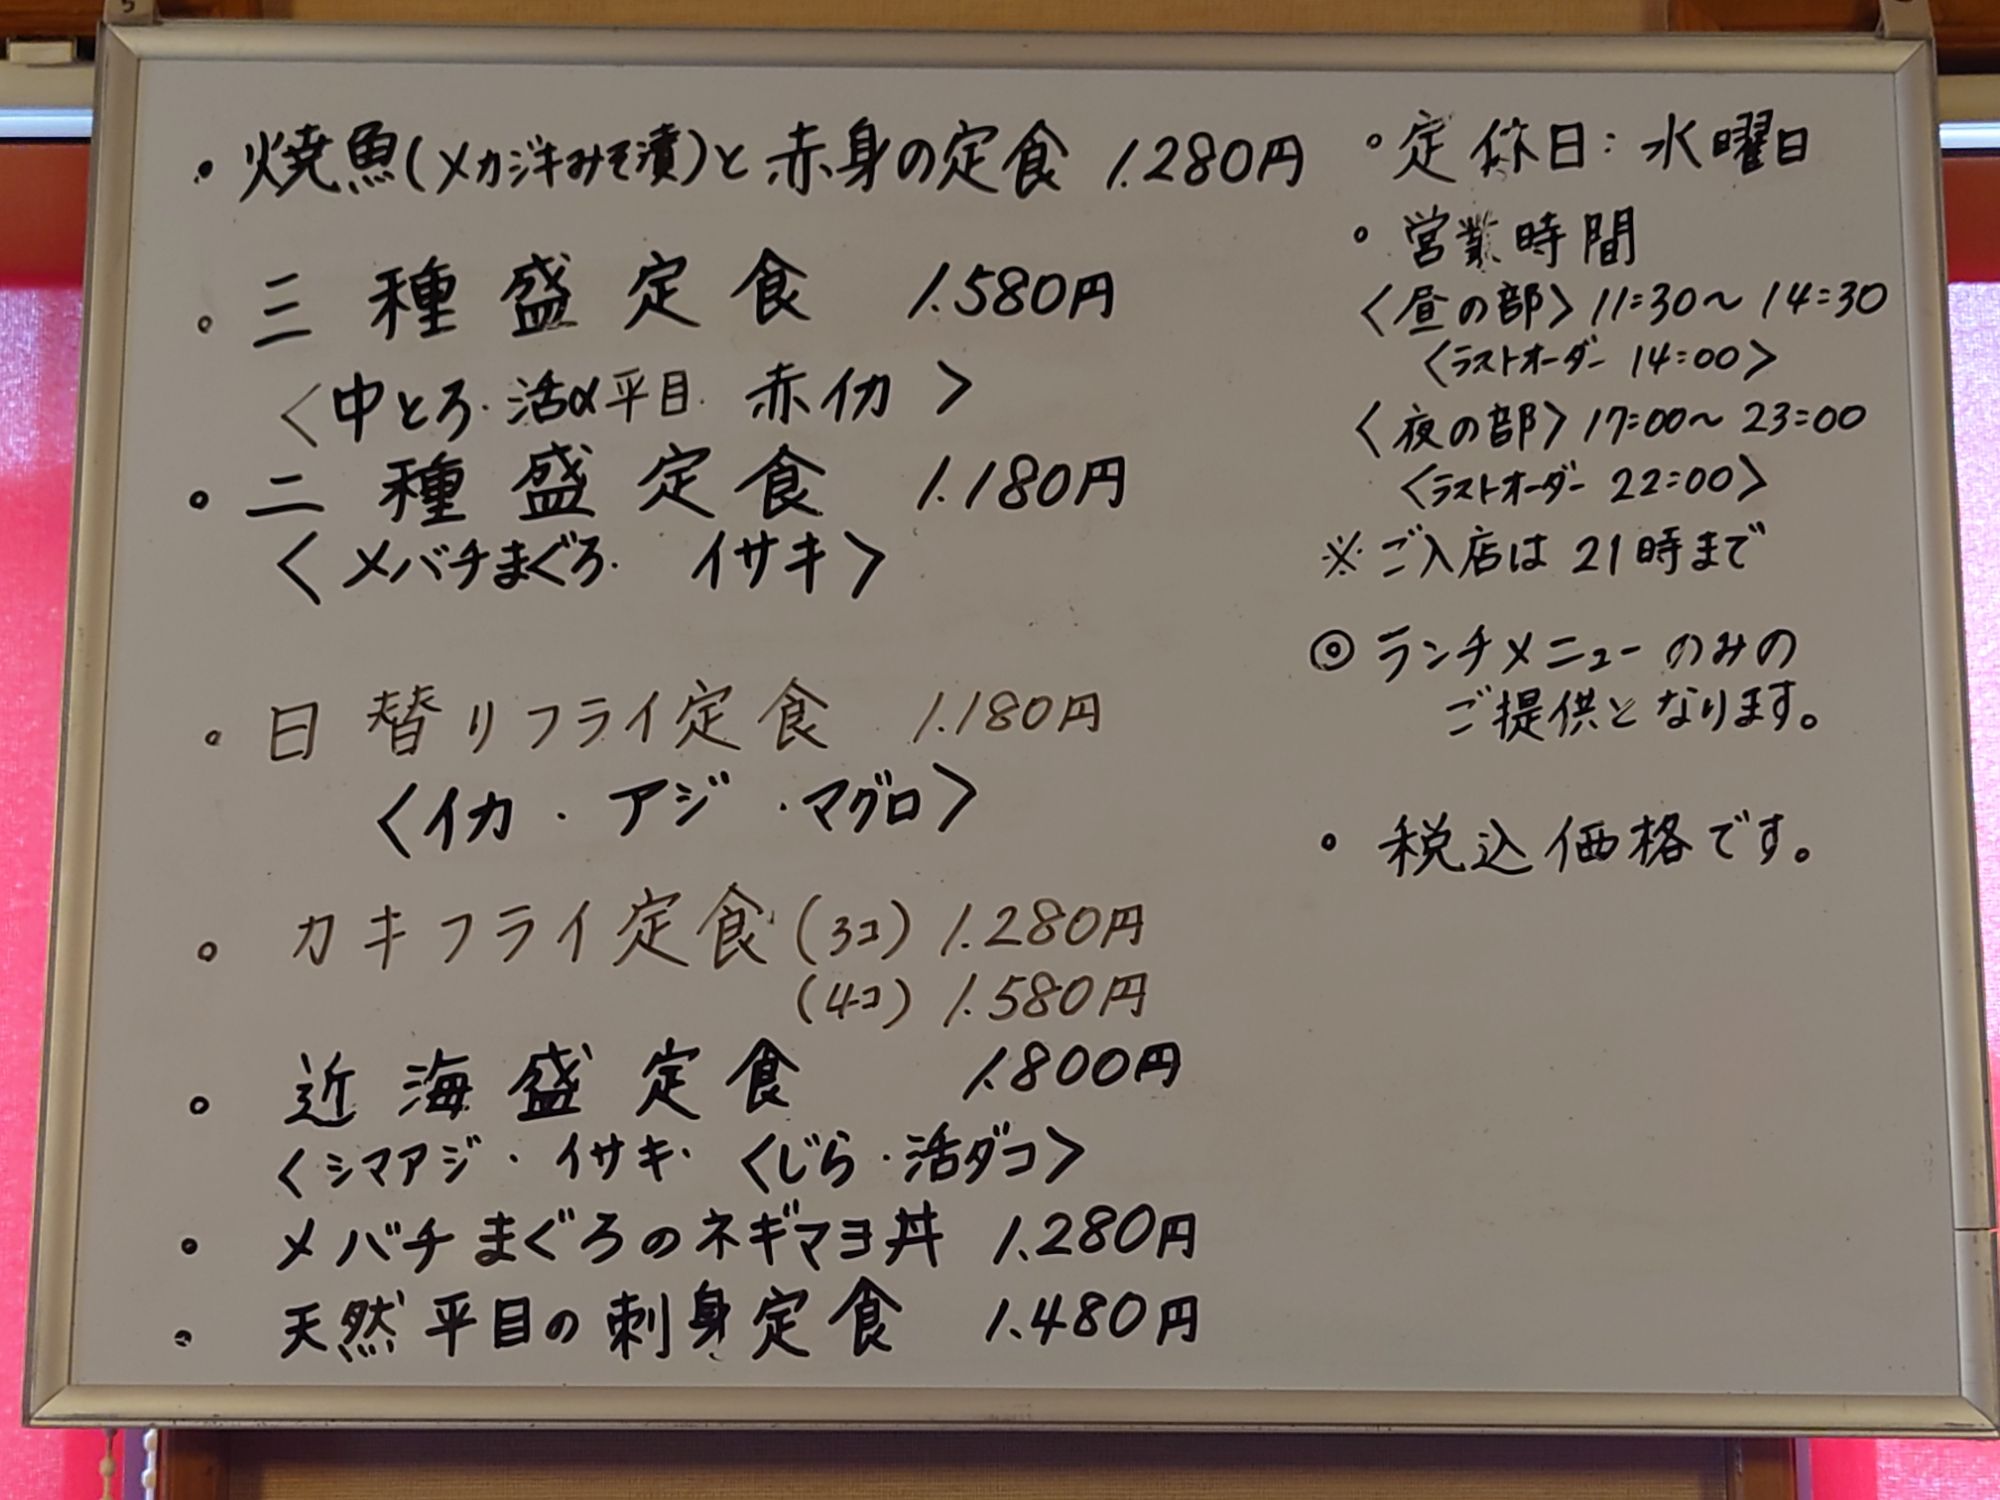 ・焼魚(メカジキみそ漬)と赤身の定食 1.280円
。三種盛定食 1.580円
〈中とろ・活〆平目・赤イカ〉
。二種盛定食 1.180円
〈メバチまぐろ・イサキ〉
。日替りフライ定食 1.180円
〈イカ・アジ・マグロ〉
。カキフライ定食(3コ) 1.280円
(4コ) 1.580円
。近海盛定食 1.800円
〈シマアジ・イサキ・くじら・活ダコ〉
。メバチまぐろのネギマヨ丼 1.280円
。天然平目の刺身定食 1.480円
。定休日:水曜日
。営業時間
〈昼の部〉11:30〜14:30
〈ラストオーダー 14:00〉
〈夜の部〉17:00〜23:00
〈ラストオーダー 22:00〉
※ご入店は21時まで
◎ランチメニューのみの
ご提供となります。
。税込価格です。